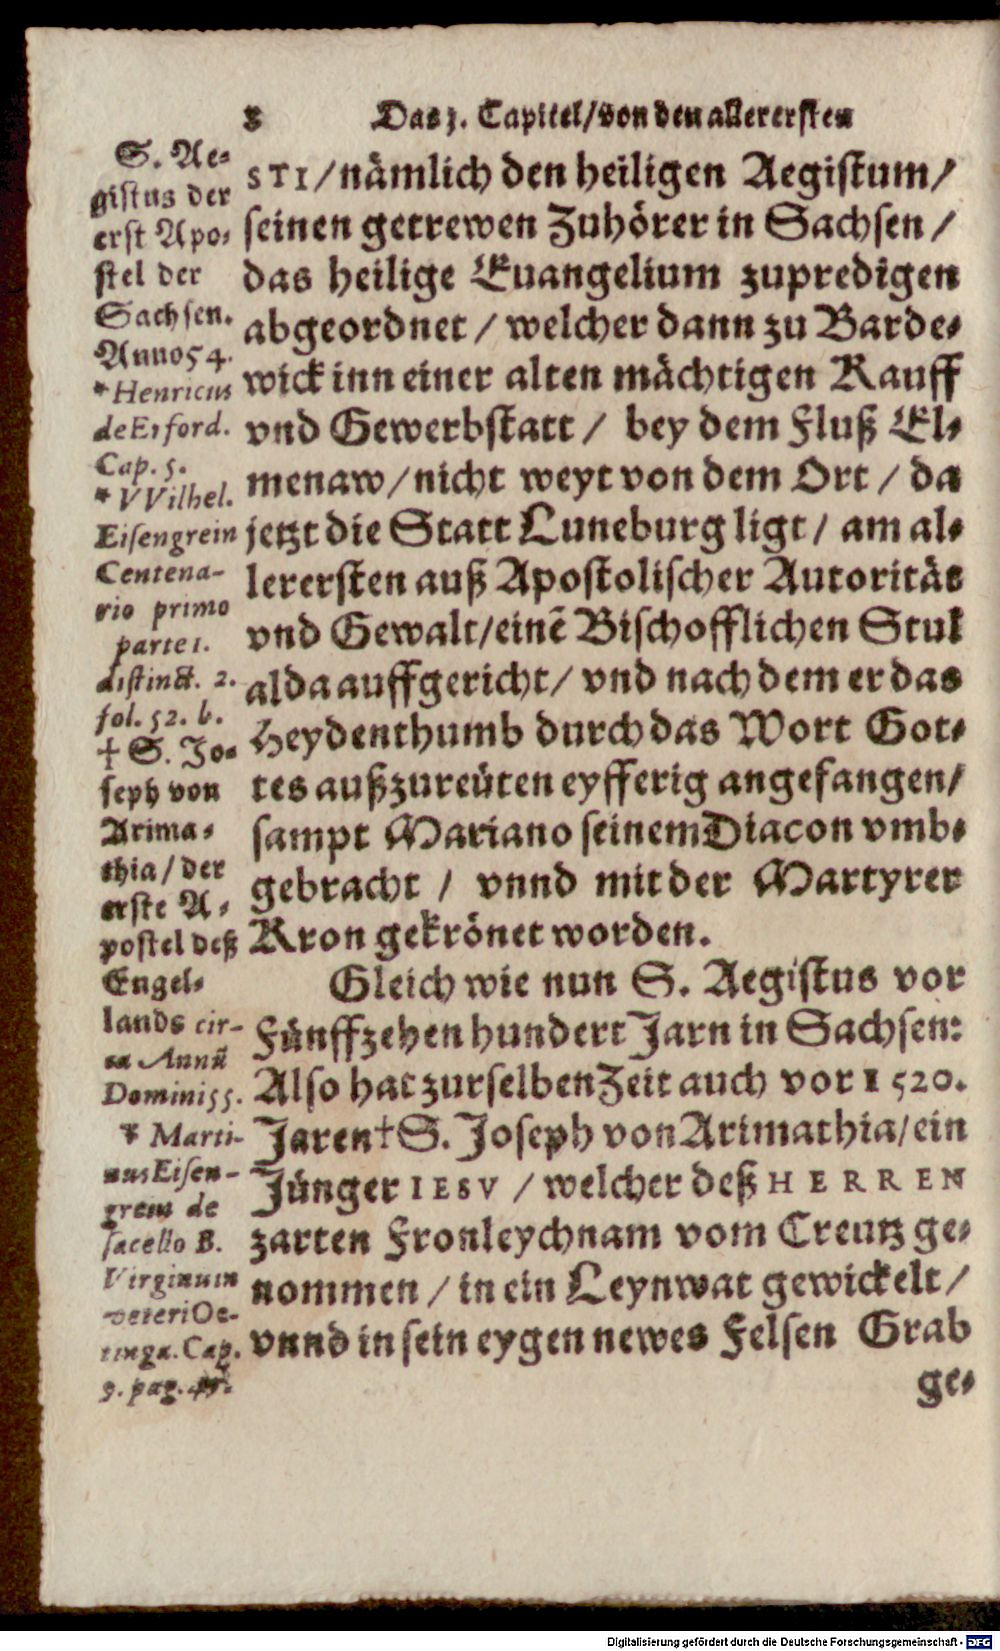 8 Das 3. Capitel/von den allerersten
S. Ae-
gistus der
erst Apo-
stel der
Sachsen.
Anno 54.
* Henricus
de Erford.
Cap. 5.
* VVilhel.
Eisengrein
Centena-
rio primo
parte 1.
distinct. 2.
fol. 52. b.
† S. Jo-
seph von
Arima-
thia/der
erste A-
postel deß
Engel-
lands cir-
ca Annũ
Domini 55.
* Marti-
nus Eisen-
grein de
sacello B.
Virginum
veteri Oe-
tinga. Cap.
9. pag.
STI/nämlich den heiligen Aegistum/
seinen getrewen Zuhörer in Sachsen/
das heilige Euangelium zupredigen
abgeordnet/welcher dann zu Barde-
wick inn einer alten mächtigen Kauff
vnd Gewerbstatt/ bey dem Fluß El-
menaw/nicht weyt von dem Ort/da
jetzt die Statt Luneburg ligt/ am al-
lerersten auß Apostolischer Autoritӓt
vnd Gewalt/einẽ Bischofflichen Stul
alda auffgericht/ vnd nach dem er das
Heydenthumb durch das Wort Got-
tes außzureüten eyfferig angefangen/
sampt Mariano seinem Diacon vmb-
gebracht/ vnnd mit der Martyrer
Kron gekrönet worden.
Gleich wie nun S. Aegistus vor
Fünffzehen hundert Jarn in Sachsen:
Also hat zur selben Zeit auch vor 1520.
Jaren † S. Joseph von Arimathia/ein
Jünger IESV/welcher deß HERREN
zarten Fronleychnam vom Creutz ge-
nommen/in ein Leynwat gewickelt/
vnnd in sein eygen newes Felsen Grab
ge-
Digitalisierung gefördert durch die Deutsche Forschungsgemeinschaft - DFG